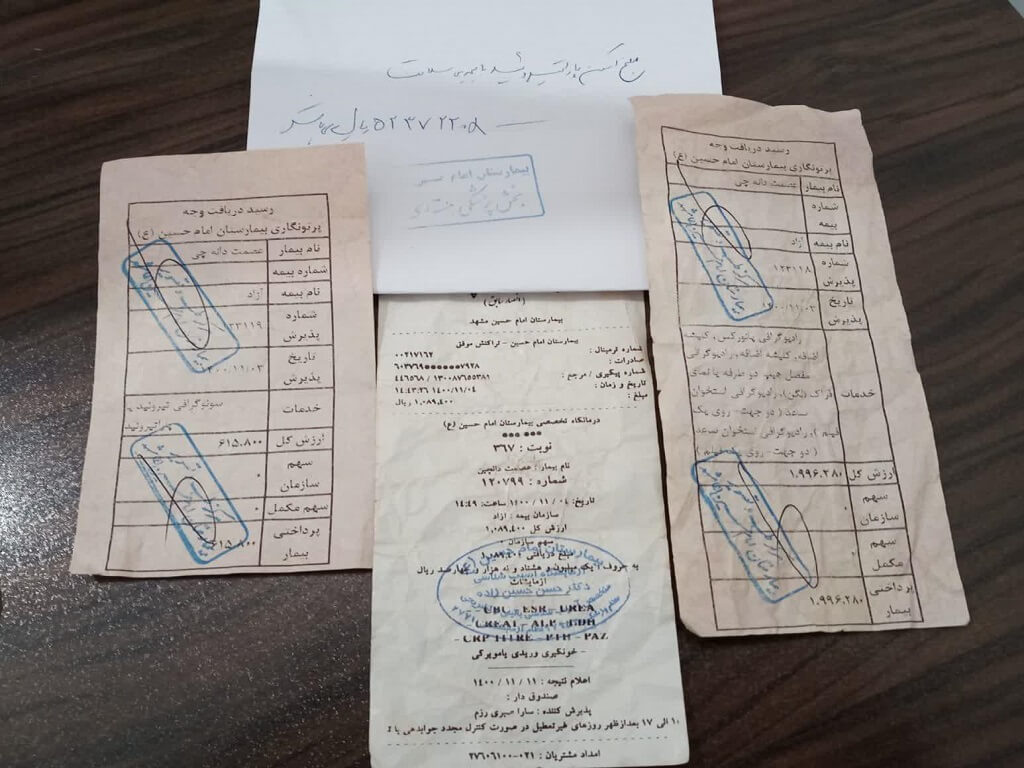 مبلغ اسکن پاراتیروئید با بیمه سلامت
۵۲۳۷۲۲۰۵ ریال
بیمارستان امام حسین
بخش پزشکی هسته‌ای
رسید دریافت وجه
پرتونگاری بیمارستان امام حسین (ع)
نام بیمار عصمت دانه چی
شماره بیمه
نام بیمه آزاد
شماره پذیرش ۱۲۳۱۱۸
تاریخ پذیرش ۱۴۰۰/۱۱/۰۳
خدمات
رادیوگرافی
اضافه، کلیشه اضافه، رادیوگرافی
مفصل
رادیوگرافی استخوان
ساعد ( دو جهت- روی یک
فیلم )، رادیوگرافی استخوان ساعد
( دو جهت- روی یک فیلم )
ارزش کل ۱.۹۹۶.۲۸۰
سهم سازمان ۰
سهم مکمل ۰
پرداختی بیمار ۱.۹۹۶.۲۸۰
رسید دریافت وجه
پرتونگاری بیمارستان امام حسین (ع)
نام بیمار عصمت دانه چی
شماره بیمه
نام بیمه آزاد
شماره پذیرش ۱۲۳۱۱۹
تاریخ پذیرش ۱۴۰۰/۱۱/۰۳
خدمات سونوگرافی تیروئید
پاراتیروئید
ارزش کل ۶۱۵.۸۰۰
سهم سازمان ۰
سهم مکمل ۰
پرداختی بیمار ۶۱۵.۸۰۰
(انصار سابق)
بیمارستان امام حسین مشهد
بیمارستان امام حسین - تراکنش موفق
شماره ترمینال : ۰۰۲۱۷۱۶۲
صادرات : ۶۰۳۷۶۹●●●●●●۷۹۲۸
شماره پیگیری / مرجع : ۴۴۶۵۶۸ / ۱۳۰۰۸۷۶۵۵۳۸۱
تاریخ و زمان : ۱۴۰۰/۱۱/۰۴ ۱۴:۴۳:۲۶
مبلغ : ۱,۰۸۹,۴۰۰ ریال
درمانگاه تخصصی بیمارستان امام حسین (ع)
*** ***
نوبت : ۳۶۷
نام بیمار : عصمت دانچین
شماره : ۱۲۰۷۹۹
تاریخ: ۰۴ / ۱۱ / ۱۴۰۰ ساعت: ۱۴:۴۹
سازمان بیمه : آزاد
ارزش کل ۱,۰۸۹,۴۰۰
سهم سازمان ۰
مبلغ دریافتی ۱,۰۸۹,۴۰۰
به حروف : یک میلیون و هشتاد و نه هزار و چهارصد ریال
آزمایشات
بیمارستان امام حسین (ع)
آزمایشگاه آسیب شناسی
دکتر حسن حسین زاده
CBC - ESR - UREA
CREAT - ALP - LDH
- CRP TITRE - PTH - PAZ
- خونگیری وریدی یامویرگی
اعلام نتیجه : ۱۱ / ۱۱ / ۱۴۰۰
صندوق دار :
پذیرش کننده : سارا صبری رزم
۱۰ الی ۱۷ بعدازظهر روزهای غیرتعطیل در صورت کنترل مجدد جوابدهی با ت
امداد مشتریان : ۰۲۱-۲۷۶۰۶۱۰۰